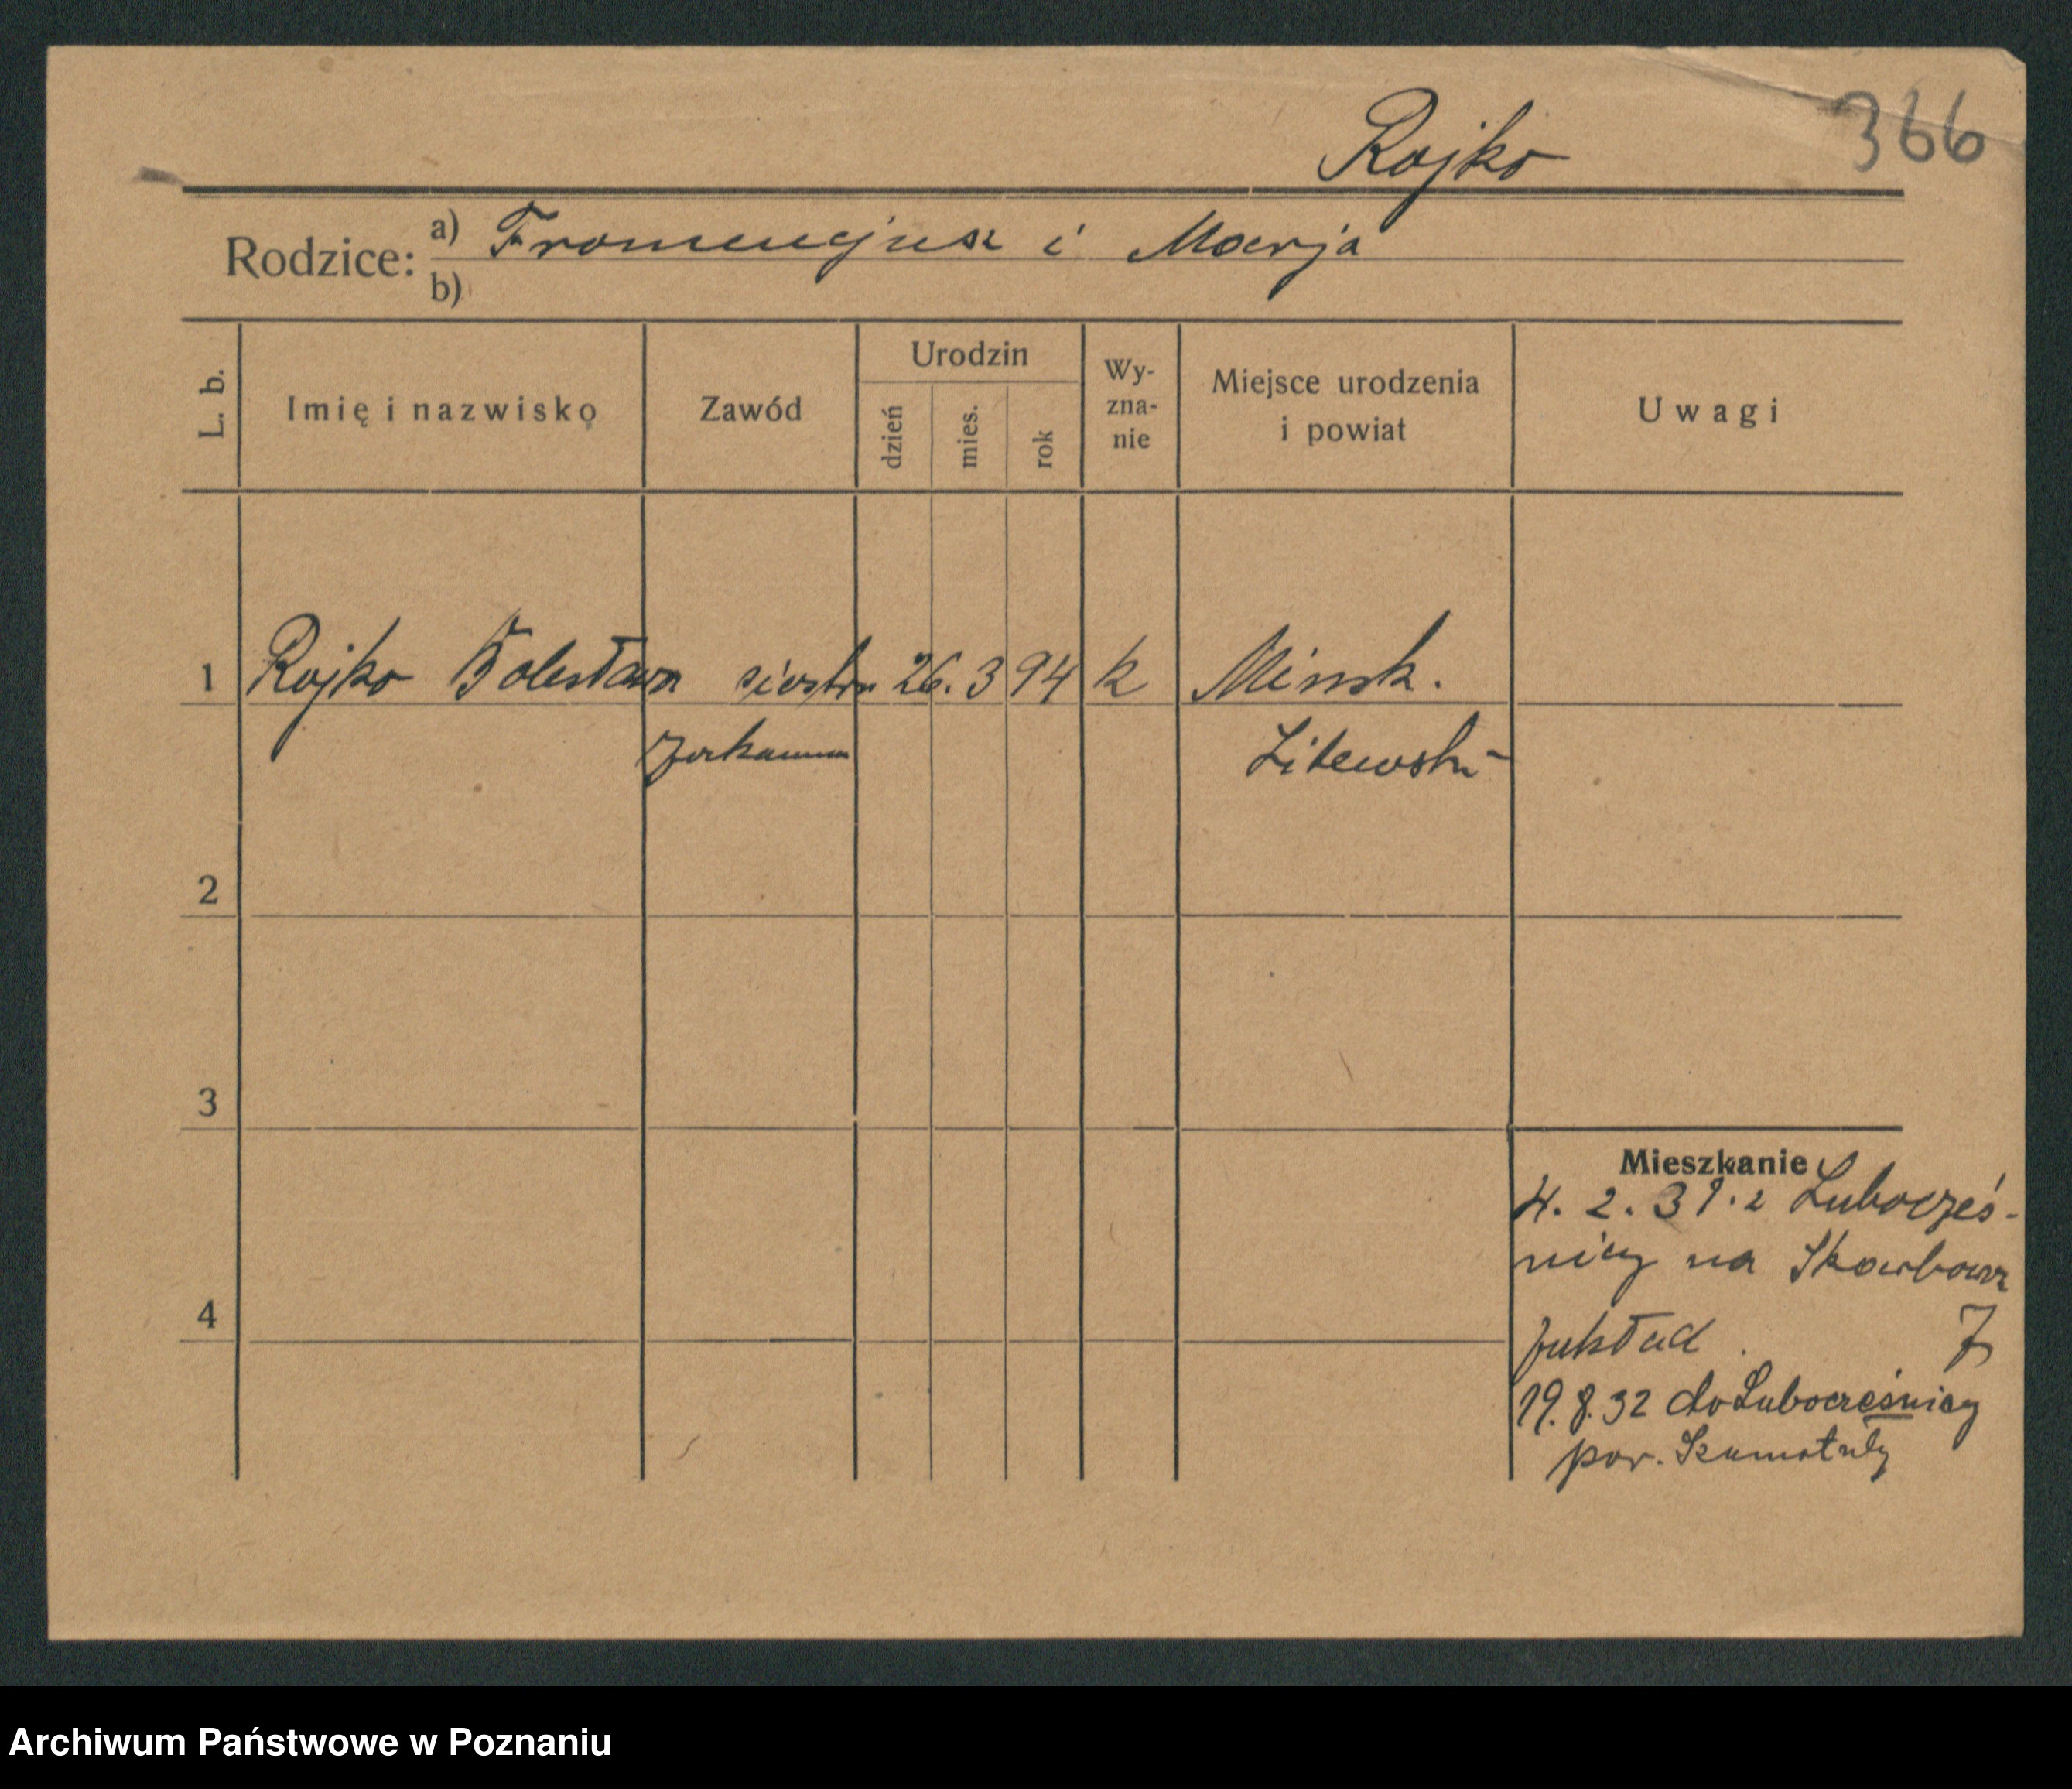 Rojko
366
Rodzice: a) Franciszek i Marja
b)
L. b.
Imię i nazwisko
Zawód
Urodzin
dzień
mies.
rok
Wy-
zna-
nie
Miejsce urodzenia
i powiat
Uwagi
1 Rojko Bolesława siostra 26. 3 94 k Minsk.
Litewski
2
3
4
Mieszkanie
4. 2. 31. z Lubocześ-
nicy na Skarbowa
7
19. 8. 32 do Lubocześnicy
pow. Szamotuły
Archiwum Państwowe w Poznaniu